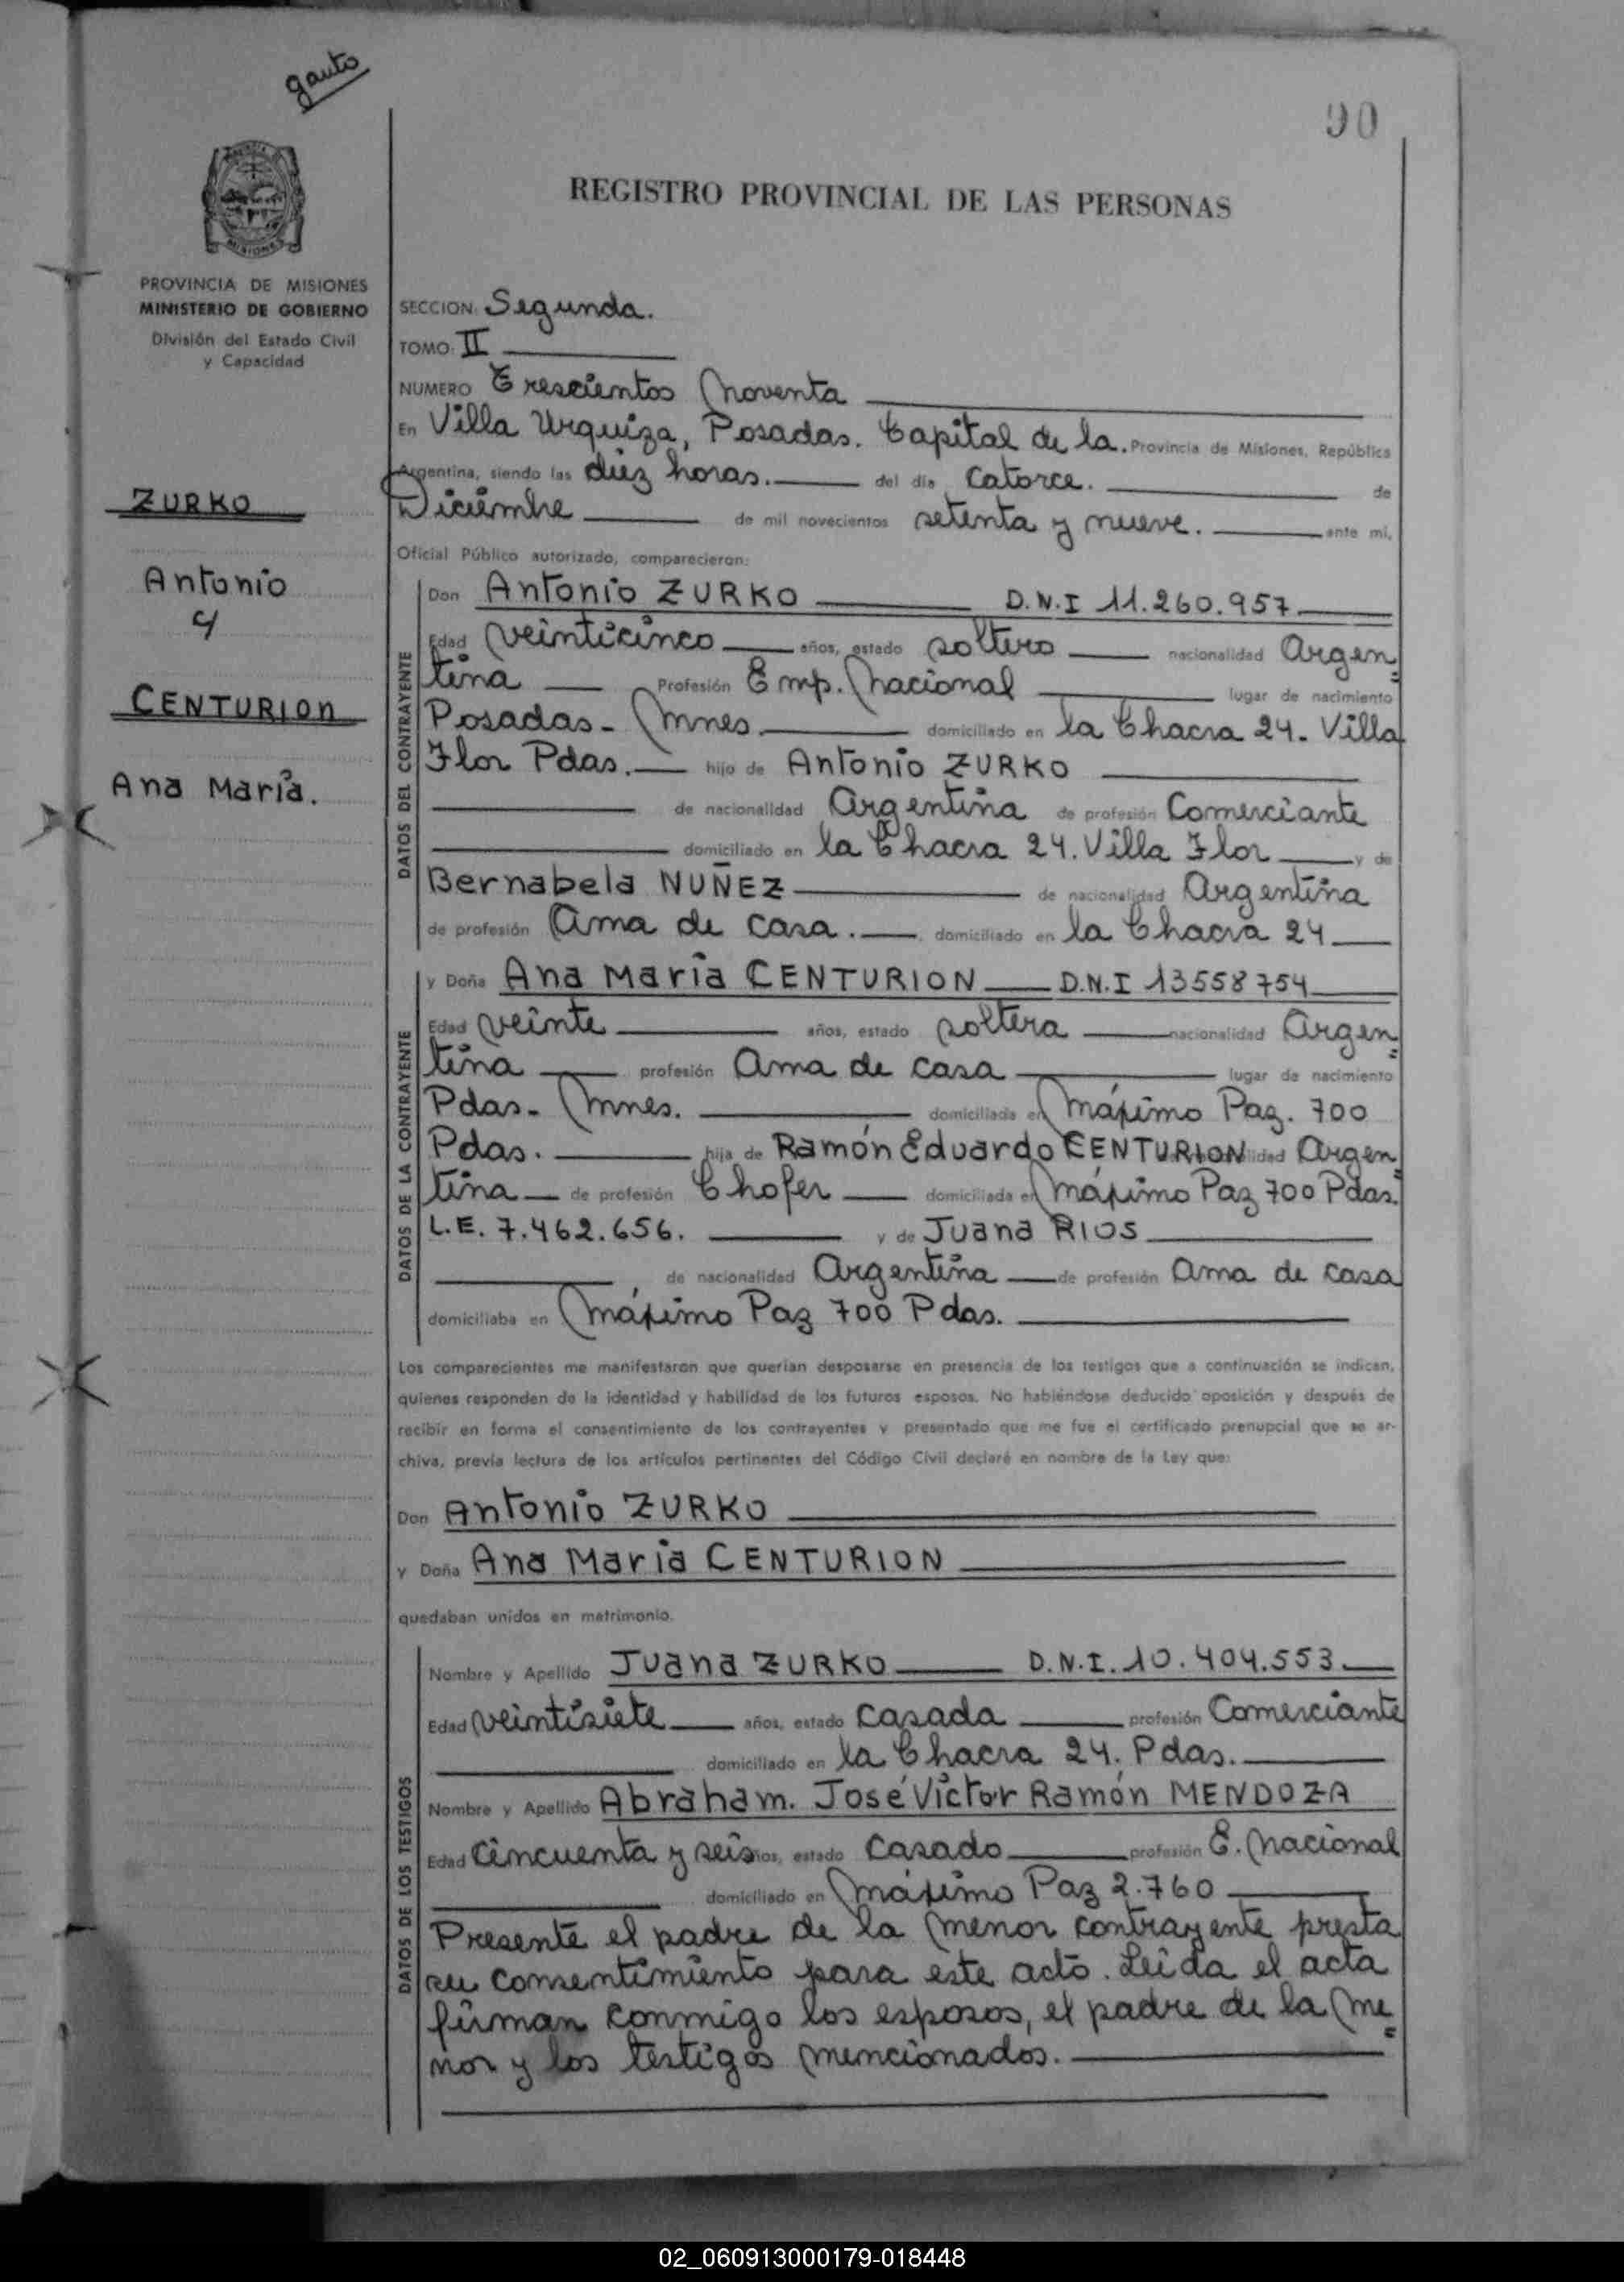 gauto
90
REGISTRO PROVINCIAL DE LAS PERSONAS
PROVINCIA DE MISIONES
MINISTERIO DE GOBIERNO
División del Estado Civil
y Capacidad
ZURKO
Antonio
c/
CENTURION
Ana María.
SECCION: Segunda.
TOMO: II
NUMERO Trescientos Noventa
En Villa Urquiza, Posadas. Capital de la. Provincia de Misiones, República
Argentina, siendo las diez horas. del día Catorce. de
Diciembre de mil novecientos setenta y nueve. ante mi,
Oficial Público autorizado, comparecieron:
DATOS DEL CONTRAYENTE
Don Antonio ZURKO D.N.I 11.260.957
Edad veinticinco años, estado soltero nacionalidad Argen=
tina Profesión Emp. Nacional lugar de nacimiento
Posadas - Mnes. domiciliado en la Chacra 24. Villa
Flor Pdas. hijo de Antonio ZURKO
de nacionalidad Argentina de profesión Comerciante
domiciliado en la Chacra 24. Villa Flor y de
Bernabela NUÑEZ de nacionalidad Argentina
de profesión Ama de casa. domiciliado en la Chacra 24
DATOS DE LA CONTRAYENTE
y Doña Ana María CENTURION D.N.I 13558754
Edad veinte años, estado soltera nacionalidad Argen=
tina profesión Ama de casa lugar de nacimiento
Pdas- Mnes. domiciliada en Máximo Paz. 700
Pdas. hija de Ramón Eduardo CENTURION Argen=
tina de profesión Chofer domiciliada en Máximo Paz 700 Pdas.
L.E. 7.462.656. y de Juana RIOS
de nacionalidad Argentina de profesión Ama de casa
domiciliaba en Máximo Paz 700 Pdas.
Los comparecientes me manifestaron que querían desposarse en presencia de los testigos que a continuación se indican,
quienes responden de la identidad y habilidad de los futuros esposos. No habiéndose deducido oposición y después de
recibir en forma el consentimiento de los contrayentes y presentado que me fue el certificado prenupcial que se ar-
chiva, previa lectura de los artículos pertinentes del Código Civil declaré en nombre de la Ley que:
Don Antonio ZURKO
y Doña Ana María CENTURION
quedaban unidos en matrimonio.
DATOS DE LOS TESTIGOS
Nombre y Apellido Juana ZURKO D.N.I. 10.404.553.
Edad veintisiete años, estado casada profesión Comerciante
domiciliado en la Chacra 24. Pdas.
Nombre y Apellido Abraham. José Víctor Ramón MENDOZA
Edad Cincuenta y seis años, estado Casado profesión E. Nacional
domiciliado en Máximo Paz 2.760
Presente el padre de la menor contrayente presta
su consentimiento para este acto. Leída el acta
firman conmigo los esposos, el padre de la me=
nor y los testigos mencionados.
02_060913000179-018448